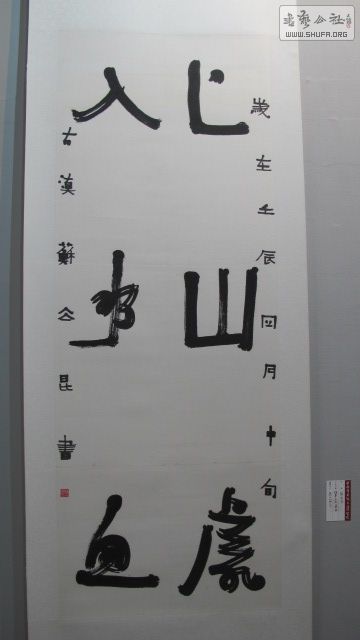 書藝公社
WWW.SHUFA.ORG
歲在壬辰四月中旬
上山虎
入水
古蘇公昆書